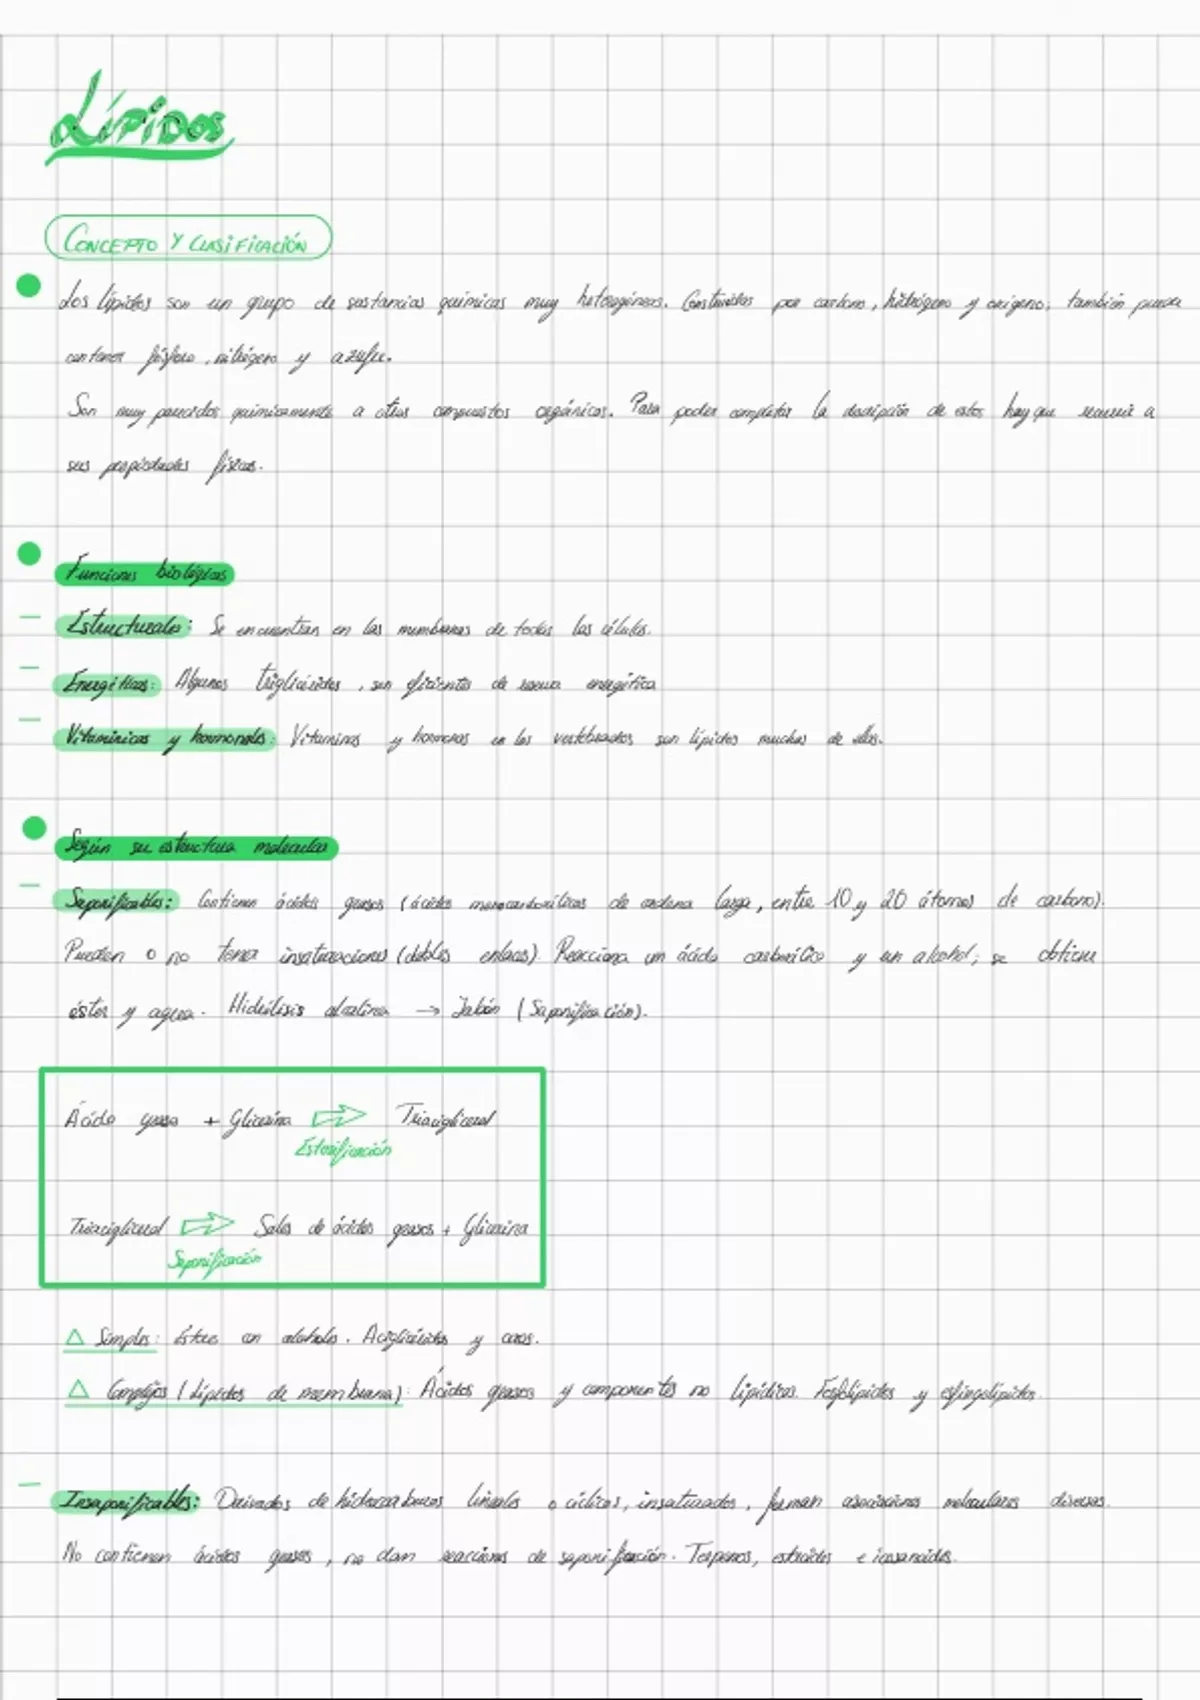 Lípidos
CONCEPTO Y CLASIFICACIÓN
Los lípidos son un grupo de sustancias químicas muy heterogéneas. Constituidas por carbono, hidrógeno y oxígeno; también pueden
contener fósforo, nitrógeno y azufre.
Son muy parecidos químicamente a otros compuestos orgánicos. Para poder completar la descripción de estos hay que recurrir a
sus propiedades físicas.
Funciones biológicas
Estructurales: Se encuentran en las membranas de todas las células.
Energéticas: Algunos triglicéridos, son eficientes de reserva energética
Vitamínicas y hormonales: Vitaminas y hormonas en los vertebrados son lípidos muchas de ellas.
Según su estructura molecular
Saponificables: Contienen ácidos grasos (ácidos monocarboxílicos de cadena larga, entre 10 y 20 átomos de carbono).
Pueden o no tener insaturaciones (dobles enlaces). Reacciona un ácido carboxílico y un alcohol; se obtiene
éster y agua. Hidrólisis alcalina → Jabón (Saponificación).
Ácido graso + Glicerina ⇨ Triacilglicerol
Esterificación
Triacilglicerol ⇨ Sales de ácidos grasos + Glicerina
Saponificación
△ Simples: Ésteres con alcoholes. Acilglicéridos y ceras.
△ Complejos (Lípidos de membrana): Ácidos grasos y componentes no lipídicos. Fosfolípidos y esfingolípidos.
Insaponificables: Derivados de hidrocarburos lineales o cíclicos, insaturados, forman asociaciones moleculares diversas.
No contienen ácidos grasos, no dan reacciones de saponificación. Terpenos, esteroides e icosanoides.